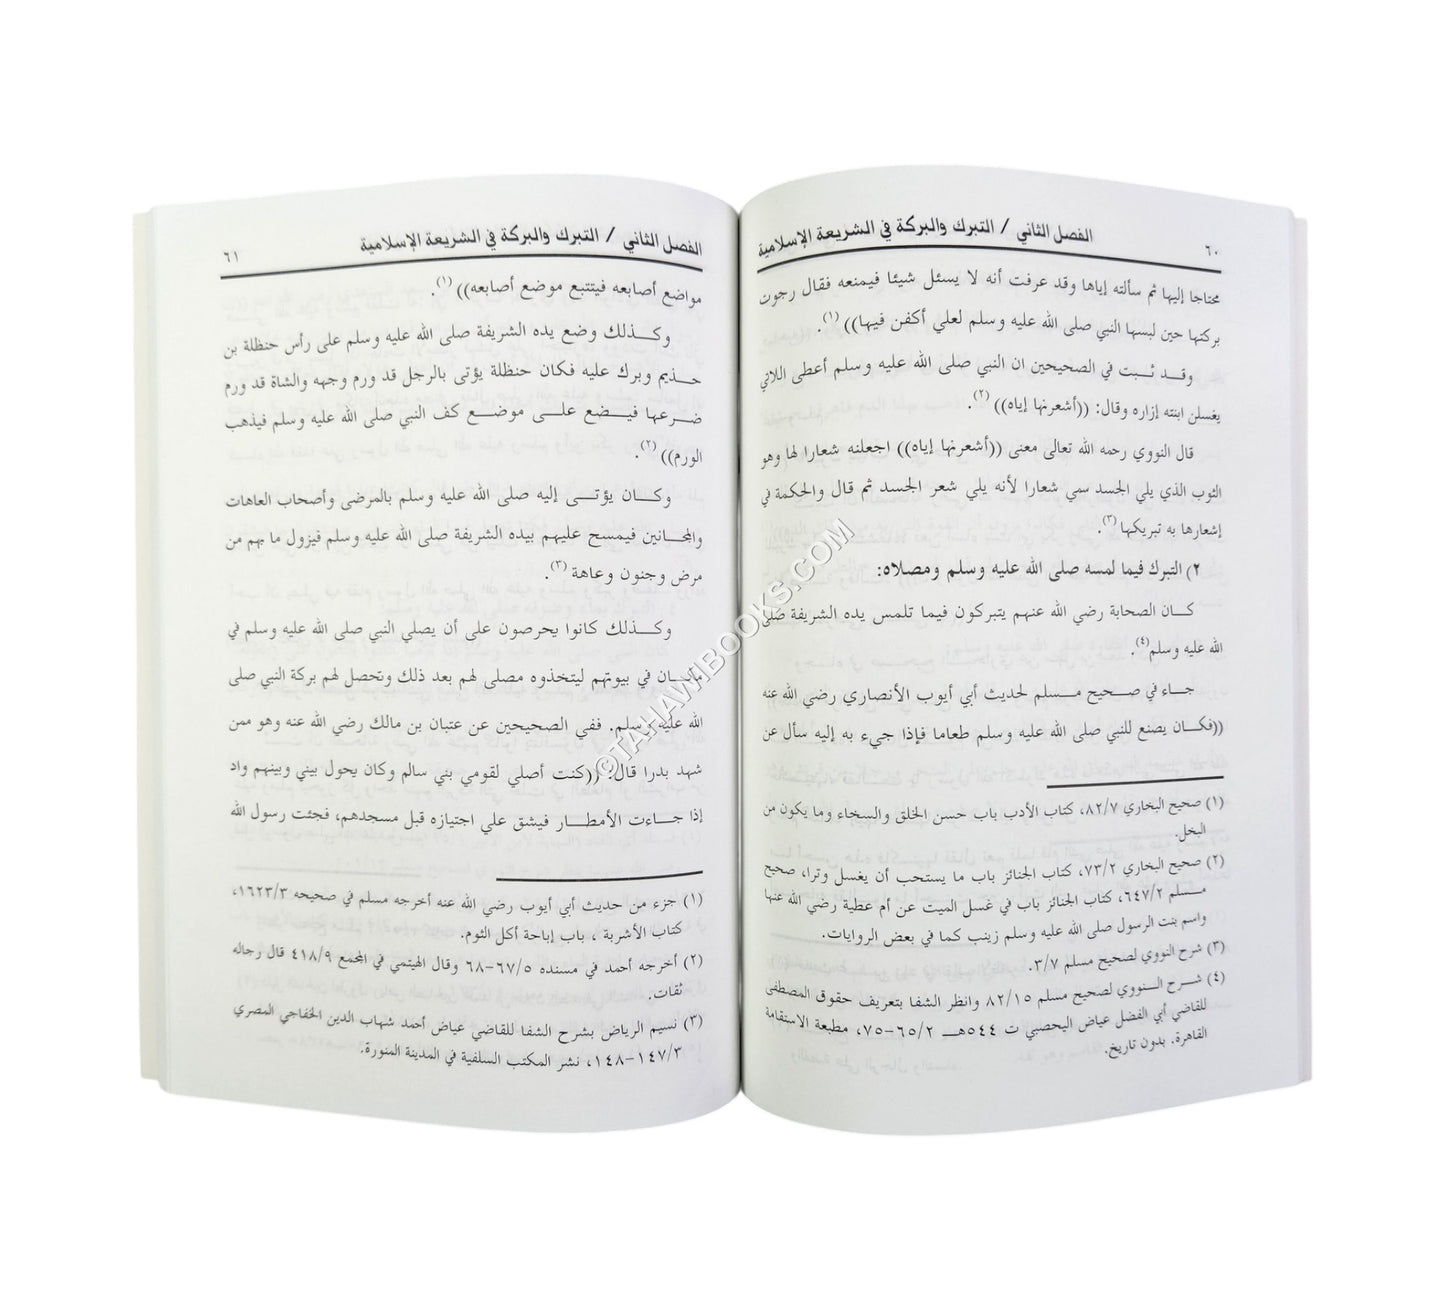 ٦٠ الفصل الثاني / التبرك والبركة في الشريعة الإسلامية
محتاجا إليها ثم سألته إياها وقد عرفت أنه لا يسئل شيئا فيمنعه فقال رجوت
بركتها حين لبسها النبي صلى الله عليه وسلم لعلي أكفن فيها)) (١).
وقد ثبت في الصحيحين ان النبي صلى الله عليه وسلم أعطى اللاتي
يغسلن ابنته إزاره وقال: ((أشعرنها إياه)) (٢).
قال النووي رحمه الله تعالى معنى ((أشعرنها إياه)) اجعلنه شعارا لها وهو
الثوب الذي يلي الجسد سمي شعارا لأنه يلي شعر الجسد ثم قال والحكمة في
إشعارها به تبريكها (٣).
٢) التبرك فيما لمسه صلى الله عليه وسلم ومصلاه:
كان الصحابة رضي الله عنهم يتبركون فيما تلمس يده الشريفة صلى
الله عليه وسلم (٤).
جاء في صحيح مسلم لحديث أبي أيوب الأنصاري رضي الله عنه
((فكان يصنع للنبي صلى الله عليه وسلم طعاما فإذا جيء به إليه سأل عن
(١) صحيح البخاري ٨٢/٧، كتاب الأدب باب حسن الخلق والسخاء وما يكون من
البخل.
(٢) صحيح البخاري ٧٣/٢، كتاب الجنائز باب ما يستحب أن يغسل وترا، صحيح
مسلم ٦٤٧/٢، كتاب الجنائز باب في غسل الميت عن أم عطية رضي الله عنها
واسم بنت الرسول صلى الله عليه وسلم زينب كما في بعض الروايات.
(٣) شرح النووي لصحيح مسلم ٣/٧.
(٤) شرح النووي لصحيح مسلم ٨٢/١٥ وانظر الشفا بتعريف حقوق المصطفى
للقاضي أبي الفضل عياض اليحصبي ت ٥٤٤هـ ٦٥/٢-٧٥، مطبعة الاستقامة
القاهرة. بدون تاريخ.
الفصل الثاني / التبرك والبركة في الشريعة الإسلامية ٦١
مواضع أصابعه فيتتبع موضع أصابعه)) (١).
وكذلك وضع يده الشريفة صلى الله عليه وسلم على رأس حنظلة بن
حذيم وبرك عليه فكان حنظلة يؤتى بالرجل قد ورم وجهه والشاة قد ورم
ضرعها فيضع على موضع كف النبي صلى الله عليه وسلم فيذهب
الورم)) (٢).
وكان يؤتى إليه صلى الله عليه وسلم بالمرضى وأصحاب العاهات
والمجانين فيمسح عليهم بيده الشريفة صلى الله عليه وسلم فيزول ما بهم من
مرض وجنون وعاهة (٣).
وكذلك كانوا يحرصون على أن يصلي النبي صلى الله عليه وسلم في
مكان في بيوتهم ليتخذوه مصلى لهم بعد ذلك وتحصل لهم بركة النبي صلى
الله عليه وسلم. ففي الصحيحين عن عتبان بن مالك رضي الله عنه وهو ممن
شهد بدرا قال: ((كنت أصلي لقومي بني سالم وكان يحول بيني وبينهم واد
إذا جاءت الأمطار فيشق علي اجتيازه قبل مسجدهم، فجئت رسول الله
(١) جزء من حديث أبي أيوب رضي الله عنه أخرجه مسلم في صحيحه ١٦٢٣/٣،
كتاب الأشربة ، باب إباحة أكل الثوم.
(٢) أخرجه أحمد في مسنده ٦٧/٥-٦٨ وقال الهيتمي في المجمع ٤١٨/٩ قال رجاله
ثقات.
(٣) نسيم الرياض بشرح الشفا للقاضي عياض أحمد شهاب الدين الخفاجي المصري
١٤٧/٣-١٤٨، نشر المكتب السلفية في المدينة المنورة.
©TAHAWIBOOKS.COM